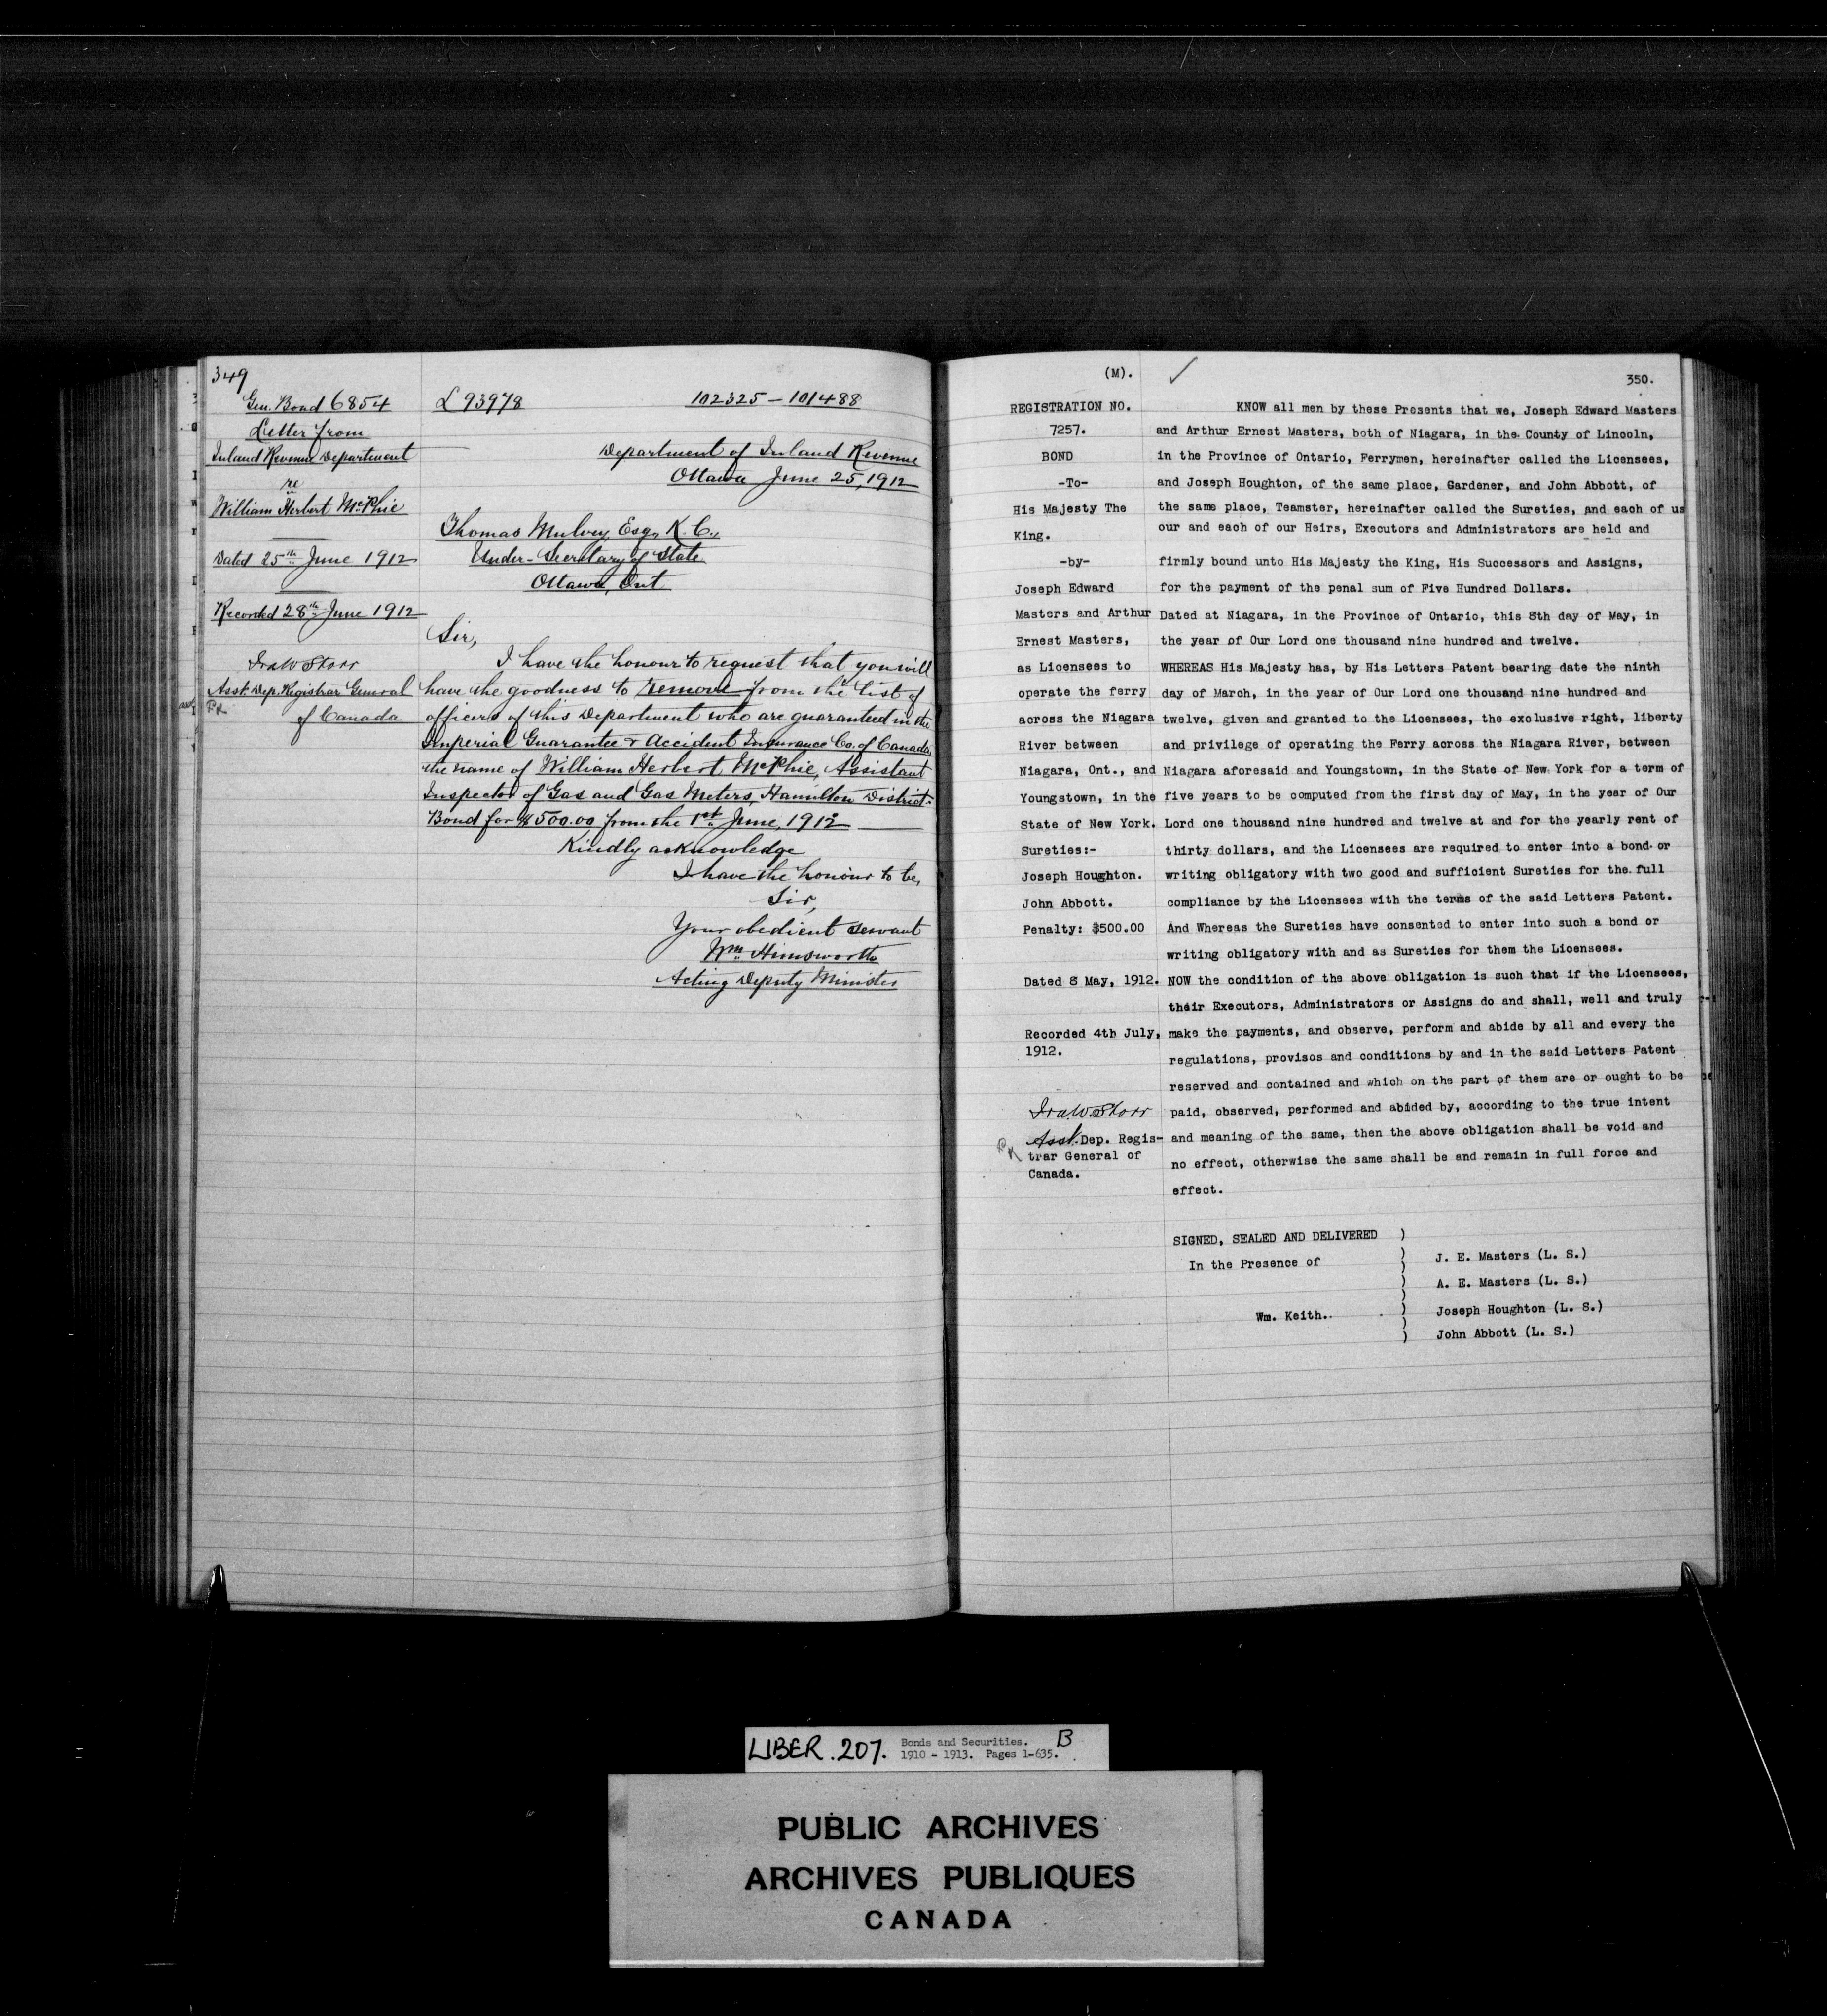 349
Gen. Bond 6854
Letter from
Inland Revenue Department
re
William Herbert McPhie
Dated 25th June 1912
Recorded 28th June 1912
Ira W Storr
Asst. Dep. Registrar General
of Canada
L 93978
102325 — 101488
Department of Inland Revenue
Ottawa June 25, 1912
Thomas Mulvey, Esq., K. C.,
Under-Secretary of State
Ottawa, Ont
Sir,
I have the honour to request that you will
have the goodness to remove from the list of
officers of this Department who are guaranteed in the
Imperial Guarantee & Accident Insurance Co. of Canada,
the name of William Herbert McPhie, Assistant
Inspector of Gas and Gas Meters, Hamilton District.
Bond for $500.00 from the 1st June, 1912
Kindly acknowledge
I have the honour to be,
Sir,
Your obedient servant
Wm Himsworth
Acting Deputy Minister
(M).
350.
REGISTRATION NO.
7257.
BOND
-To-
His Majesty The
King.
-by-
Joseph Edward
Masters and Arthur
Ernest Masters,
as Licensees to
operate the ferry
across the Niagara
River between
Niagara, Ont., and
Youngstown, in the
State of New York.
Sureties:-
Joseph Houghton.
John Abbott.
Penalty: $500.00
Dated 8 May, 1912.
Recorded 4th July,
1912.
Ira W. Storr
Asst. Dep. Regis-
trar General of
Canada.
KNOW all men by these Presents that we, Joseph Edward Masters
and Arthur Ernest Masters, both of Niagara, in the County of Lincoln,
in the Province of Ontario, Ferrymen, hereinafter called the Licensees,
and Joseph Houghton, of the same place, Gardener, and John Abbott, of
the same place, Teamster, hereinafter called the Sureties, and each of us
our and each of our Heirs, Executors and Administrators are held and
firmly bound unto His Majesty the King, His Successors and Assigns,
for the payment of the penal sum of Five Hundred Dollars.
Dated at Niagara, in the Province of Ontario, this 8th day of May, in
the year of Our Lord one thousand nine hundred and twelve.
WHEREAS His Majesty has, by His Letters Patent bearing date the ninth
day of March, in the year of Our Lord one thousand nine hundred and
twelve, given and granted to the Licensees, the exclusive right, liberty
and privilege of operating the Ferry across the Niagara River, between
Niagara aforesaid and Youngstown, in the State of New York for a term of
five years to be computed from the first day of May, in the year of Our
Lord one thousand nine hundred and twelve at and for the yearly rent of
thirty dollars, and the Licensees are required to enter into a bond or
writing obligatory with two good and sufficient Sureties for the full
compliance by the Licensees with the terms of the said Letters Patent.
And Whereas the Sureties have consented to enter into such a bond or
writing obligatory with and as Sureties for them the Licensees.
NOW the condition of the above obligation is such that if the Licensees,
their Executors, Administrators or Assigns do and shall, well and truly
make the payments, and observe, perform and abide by all and every the
regulations, provisos and conditions by and in the said Letters Patent
reserved and contained and which on the part of them are or ought to be
paid, observed, performed and abided by, according to the true intent
and meaning of the same, then the above obligation shall be void and
no effect, otherwise the same shall be and remain in full force and
effect.
SIGNED, SEALED AND DELIVERED )
In the Presence of
Wm. Keith.
J. E. Masters (L. S.)
A. E. Masters (L. S.)
Joseph Houghton (L. S.)
John Abbott (L. S.)
LIBER. 207. Bonds and Securities. B
1910 - 1913. Pages 1-635.
PUBLIC ARCHIVES
ARCHIVES PUBLIQUES
CANADA